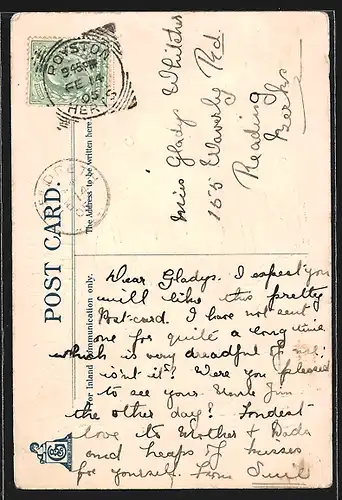 POST CARD.
The Address to be written here.
For Inland Communication only.
ROYSTON
9 45 PM
FE 12
05
HERTS
Miss Gladys Whitcher
155 Waverly Rd.
Reading
Berks
Dear Gladys. I expect you
will like this pretty
Post-card. I have not sent
one for quite a long time
which is very dreadful of me!
isn't it? Were you pleased
to see your Uncle Jim
the other day? Fondest
love to Mother & Dada
and heaps of kisses
for yourself. From